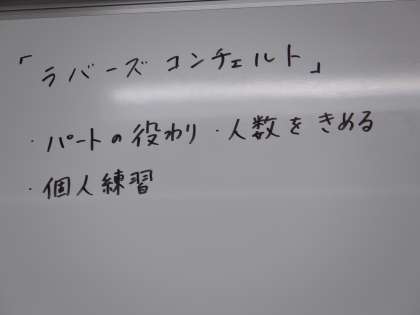 「ラバーズ コンチェルト」
・パートの役わり・人数をきめる
・個人練習